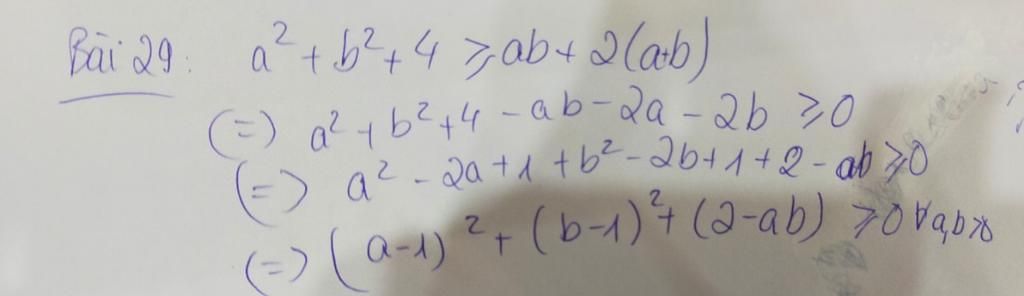 Bài 29: a² + b² + 4 ⩾ ab + 2(a+b)
(=) a² + b² + 4 - ab - 2a - 2b ⩾ 0
(=) a² - 2a + 1 + b² - 2b + 1 + 2 - ab ⩾ 0
(=) (a-1)² + (b-1)² + (2-ab) ⩾ 0 ∀a,b